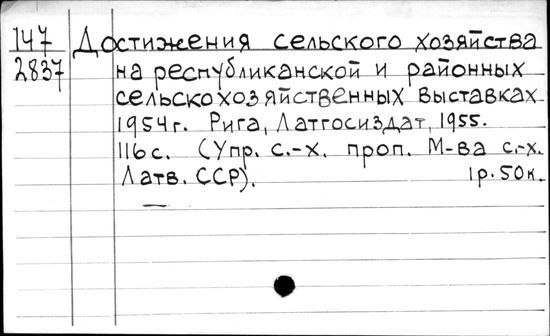 147 Достижения сельского хозяйства
2837 на республиканской и районных
сельскохозяйственных выставках
1954г. Рига, Латгосиздат, 1955.
116с. (Упр. с.-х. проп. М-ва с.-х.
Латв. ССР). 1р. 50к.